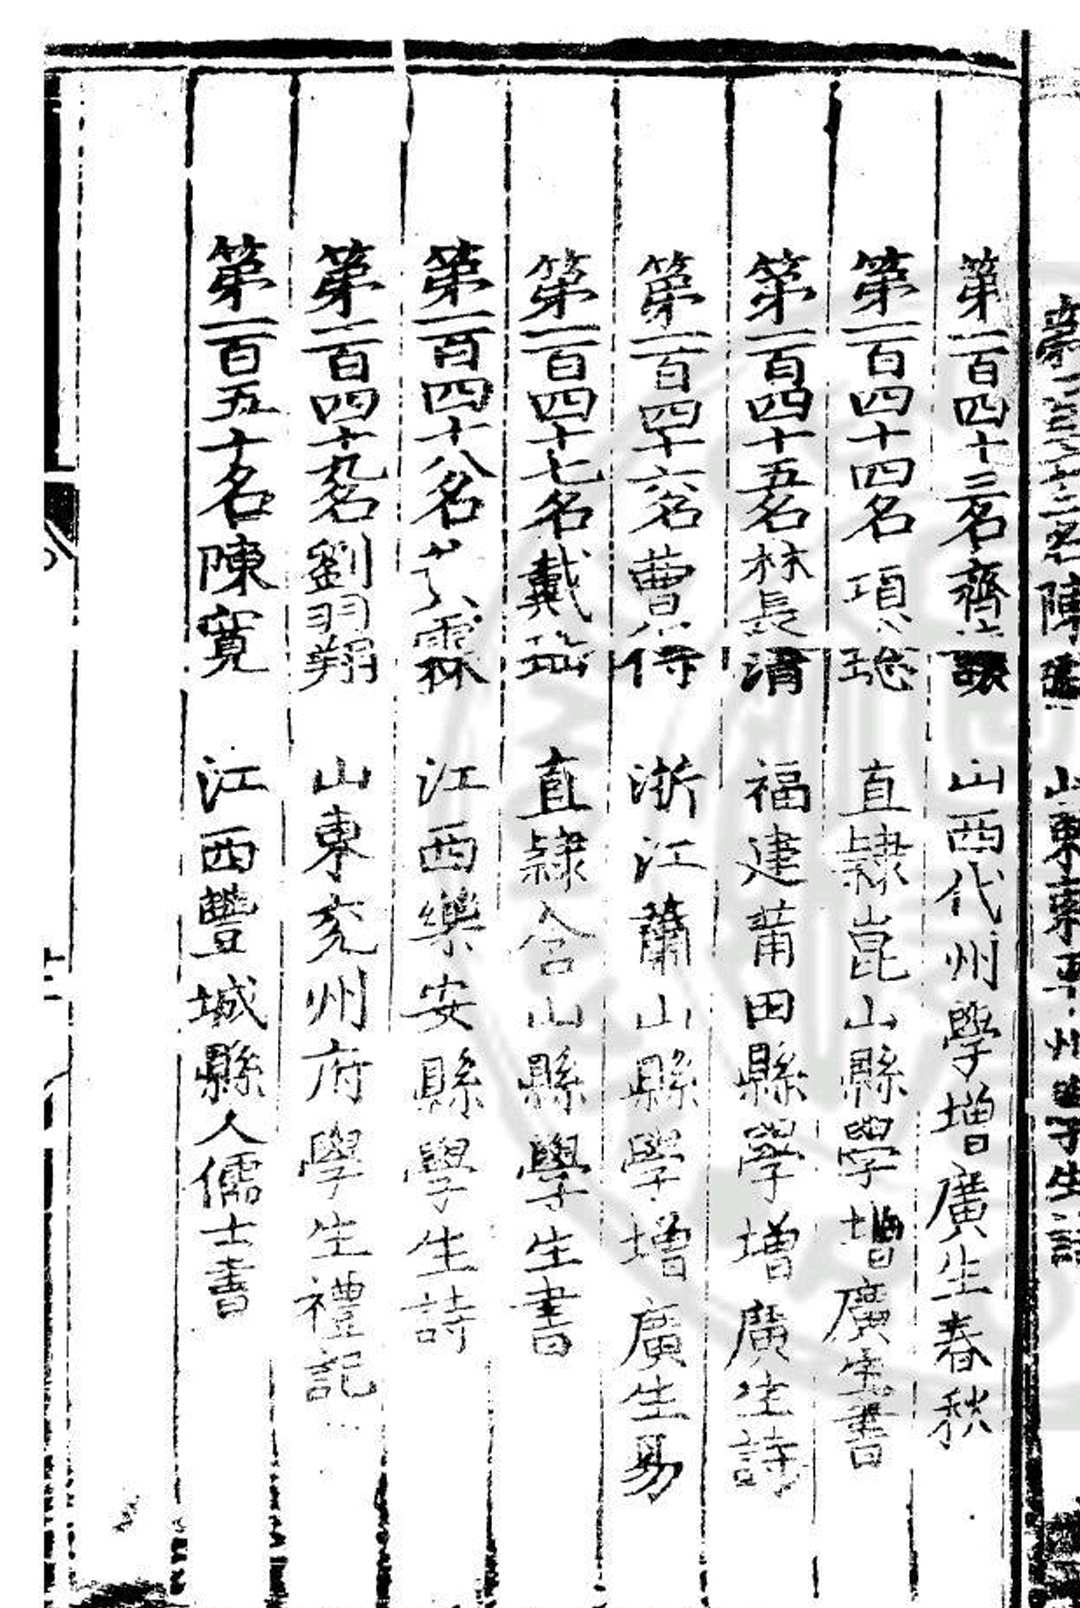 第一百四十三名齊
山西代州學增廣生春秋
第一百四十四名項聰
直隸崑山縣學增廣生書
第一百四十五名林長清
福建莆田縣學增廣生詩
第一百四十六名曹
浙江蕭山縣學增廣生易
第一百四十七名戴
直隸含山縣學生書
第一百四十八名霖
江西樂安縣學生詩
第一百四十九名劉羽翔
山東兖州府學生禮記
第一百五十名陳寬
江西豐城縣人儒士書